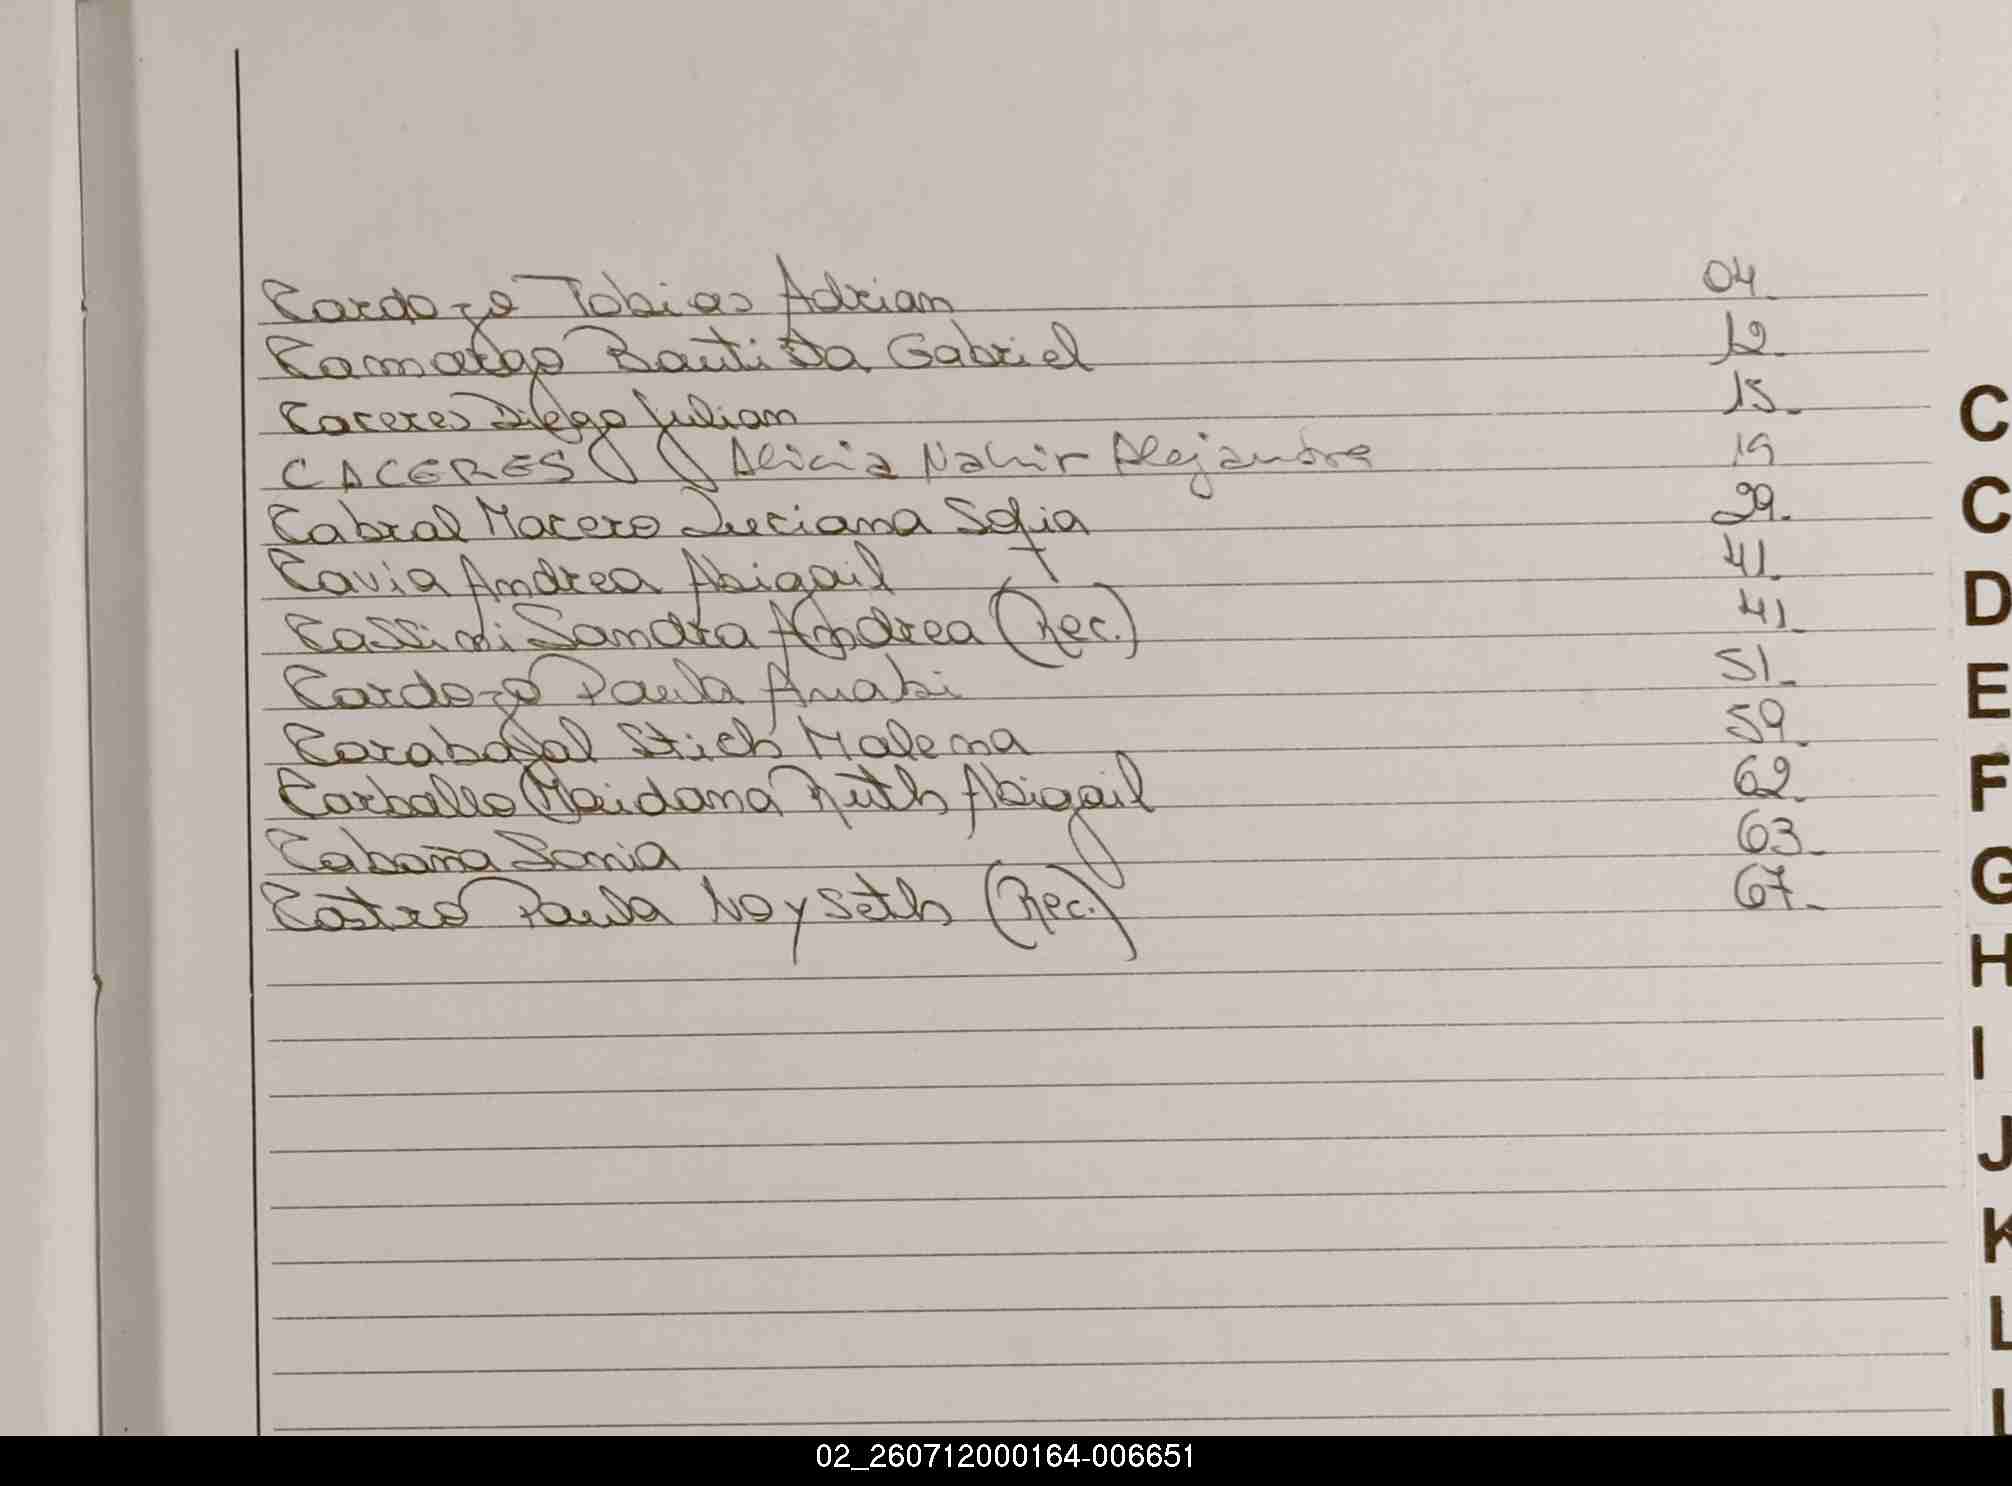 Cardozo Tobias Adrian 04
Camargo Bautista Gabriel 12
Caceres Diego Julian 15
CACERES Alicia Nahir Alejandra 19
Cabral Macero Luciana Sofia 29
Cavia Andrea Abigail 41
Cassini Sandra Andrea (Rec.) 41
Cardozo Paula Anabi 51
Carabajal Stich Malena 59
Carballo Maidana Ruth Abigail 62
Cabaña Sonia 63
Castro Paula Noyseth (Rec.) 67
C
C
D
E
F
G
H
I
J
K
L
02_260712000164-006651